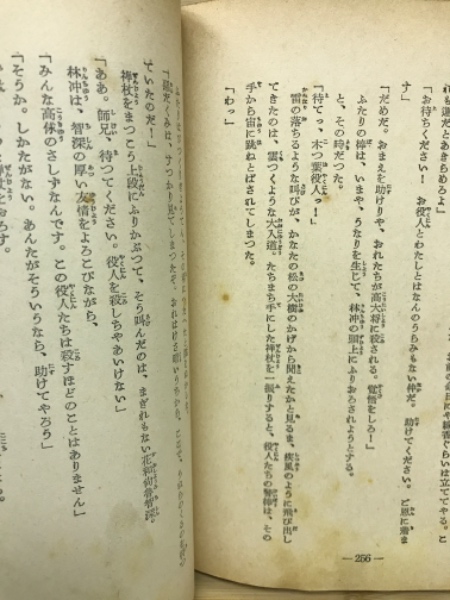 れも運だとあきらめろよ」
「お待ちください！　お役人とわたしとはなんのうらみもない仲だ。助けてください。ご恩に着ま
す」
「だめだ。おまえを助けりや、おれたちが高大将に殺される。覚悟をしろ！」
ふたりの棒は、いまや、うなりを生じて、林冲の頭上にふりおろされようとする。
と、その時だつた。
「待てっ、木つ葉役人っ！」
雷の落ちるような叫びが、かなたの松の大樹のかげから聞えたかと見るま、疾風のように飛び出し
てきたのは、雲つくような大入道。たちまち手にした禅杖を一振りすると、役人たちの警棒は、その
手から宙に跳ねとばされてしまつた。
「わっ」
―266―
ていたのだ！」
禅杖をまつこう上段にふりかぶつて、そう叫んだのは、まぎれもない花和尚魯智深。
「ああ。師兄、待つてください。役人を殺しちやあいけない」
林冲は、智深の厚い友情をよろこびながら、
「みんな高俅のさしずなんです。この役人たちは殺すほどのことはありません」
「そうか。しかたがない。あんたがそういうなら、助けてやろう」